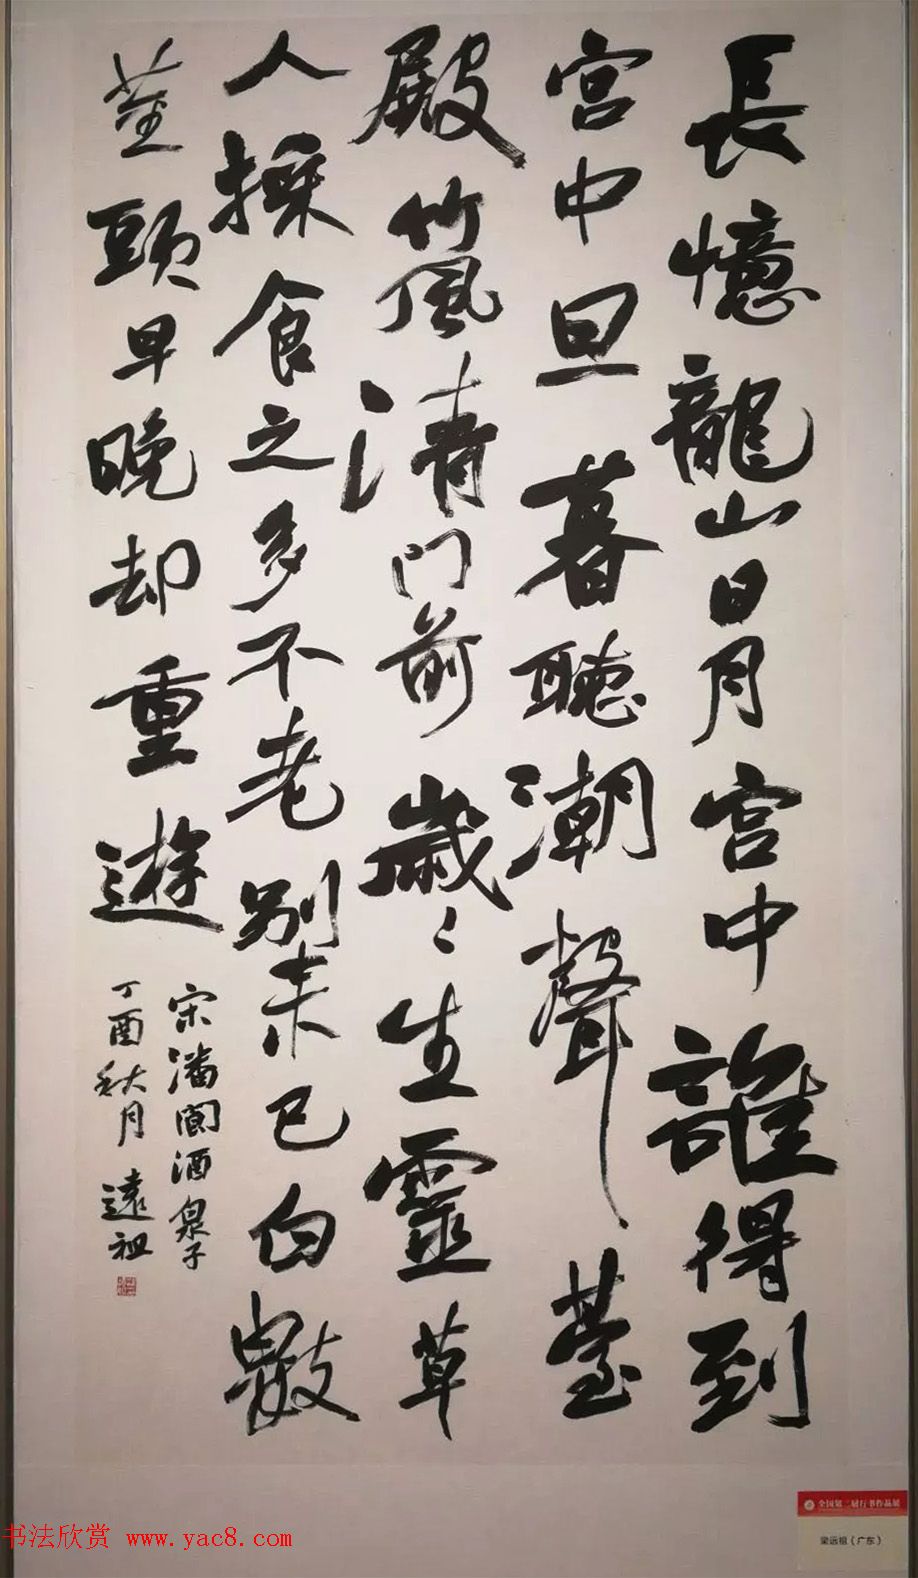 長憶龍山日月宮中誰得到
宮中旦暮聽潮聲臺
殿竹風清門前歲〻生靈草
人採食之多不老別來已白數
莖頭早晚却重遊
宋潘閬酒泉子
丁酉秋月遠祖
全国第二届行书作品展
梁远祖（广东）
书法欣赏 www.yac8.com